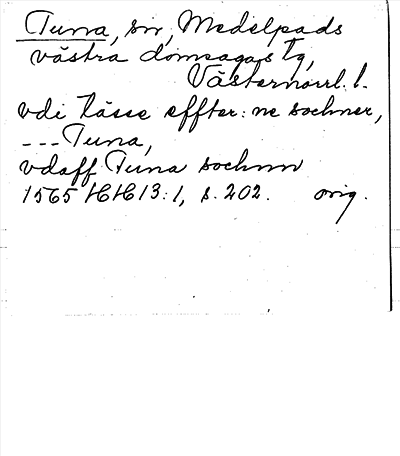 Tuna, sn, Medelpads
västra domsagas tg,
Västernorrl. l.
vdi tässe effter: ne sochner,
--- Tuna,
vdaff Tuna sochnn
1565 HH 13:1, s. 202. orig.